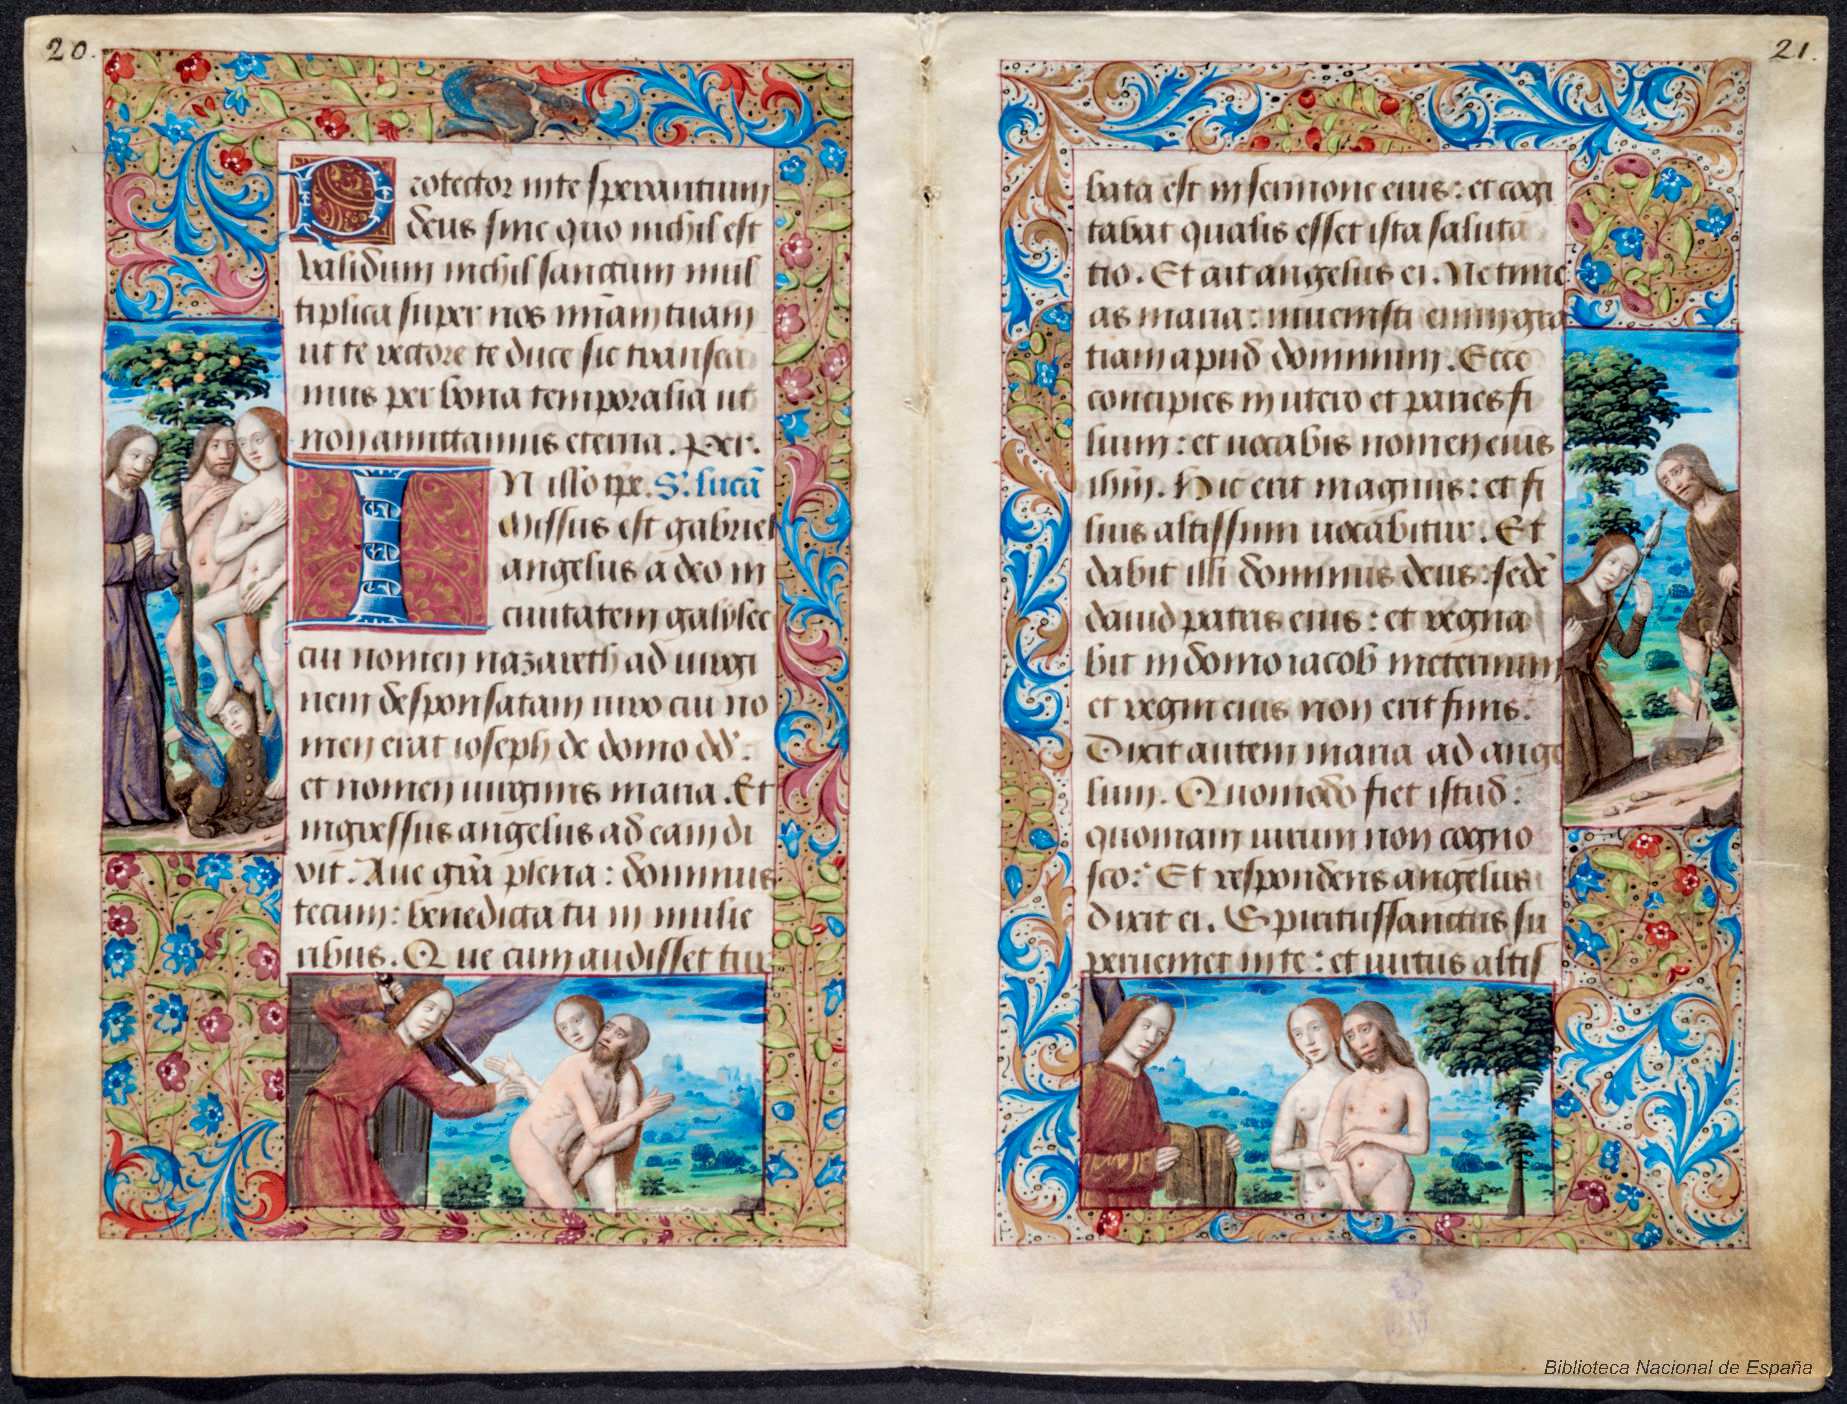 20.
Protector in te sperantium
deus sine quo nichil est
validum nichil sanctum mul
tiplica super nos miam tuam
ut te rectore te duce sic transea
mus per bona temporalia ut
non amittamus eterna. Per.
IN illo tpe. S. lucā
Missus est gabriel
angelus a deo in
civitatem galylee
cui nomen nazareth ad virgi
nem desponsatam viro cui no
men erat ioseph de domo dd:
et nomen virginis maria. Et
ingressus angelus ad eam di
xit. Ave grā plena: dominus
tecum: benedicta tu in mulie
ribus. Que cum audisset tur
21.
bata est in sermone eius: et cogi
tabat qualis esset ista saluta
tio. Et ait angelus ei. Ne time
as maria: invenisti enim gra
tiam apud dominum. Ecce
concipies in utero et paries fi
lium: et vocabis nomen eius
ihm. Hic erit magnus: et fi
lius altissimi vocabitur. Et
dabit illi dominus deus: sedē
david patris eius: et regna
bit in domo iacob in eternum
et regni eius non erit finis.
Dixit autem maria ad ange
lum. Quomodo fiet istud:
quoniam virum non cogno
sco: Et respondens angelus
dixit ei. Spiritussanctus su
perveniet in te: et virtus altis
BN
Biblioteca Nacional de España